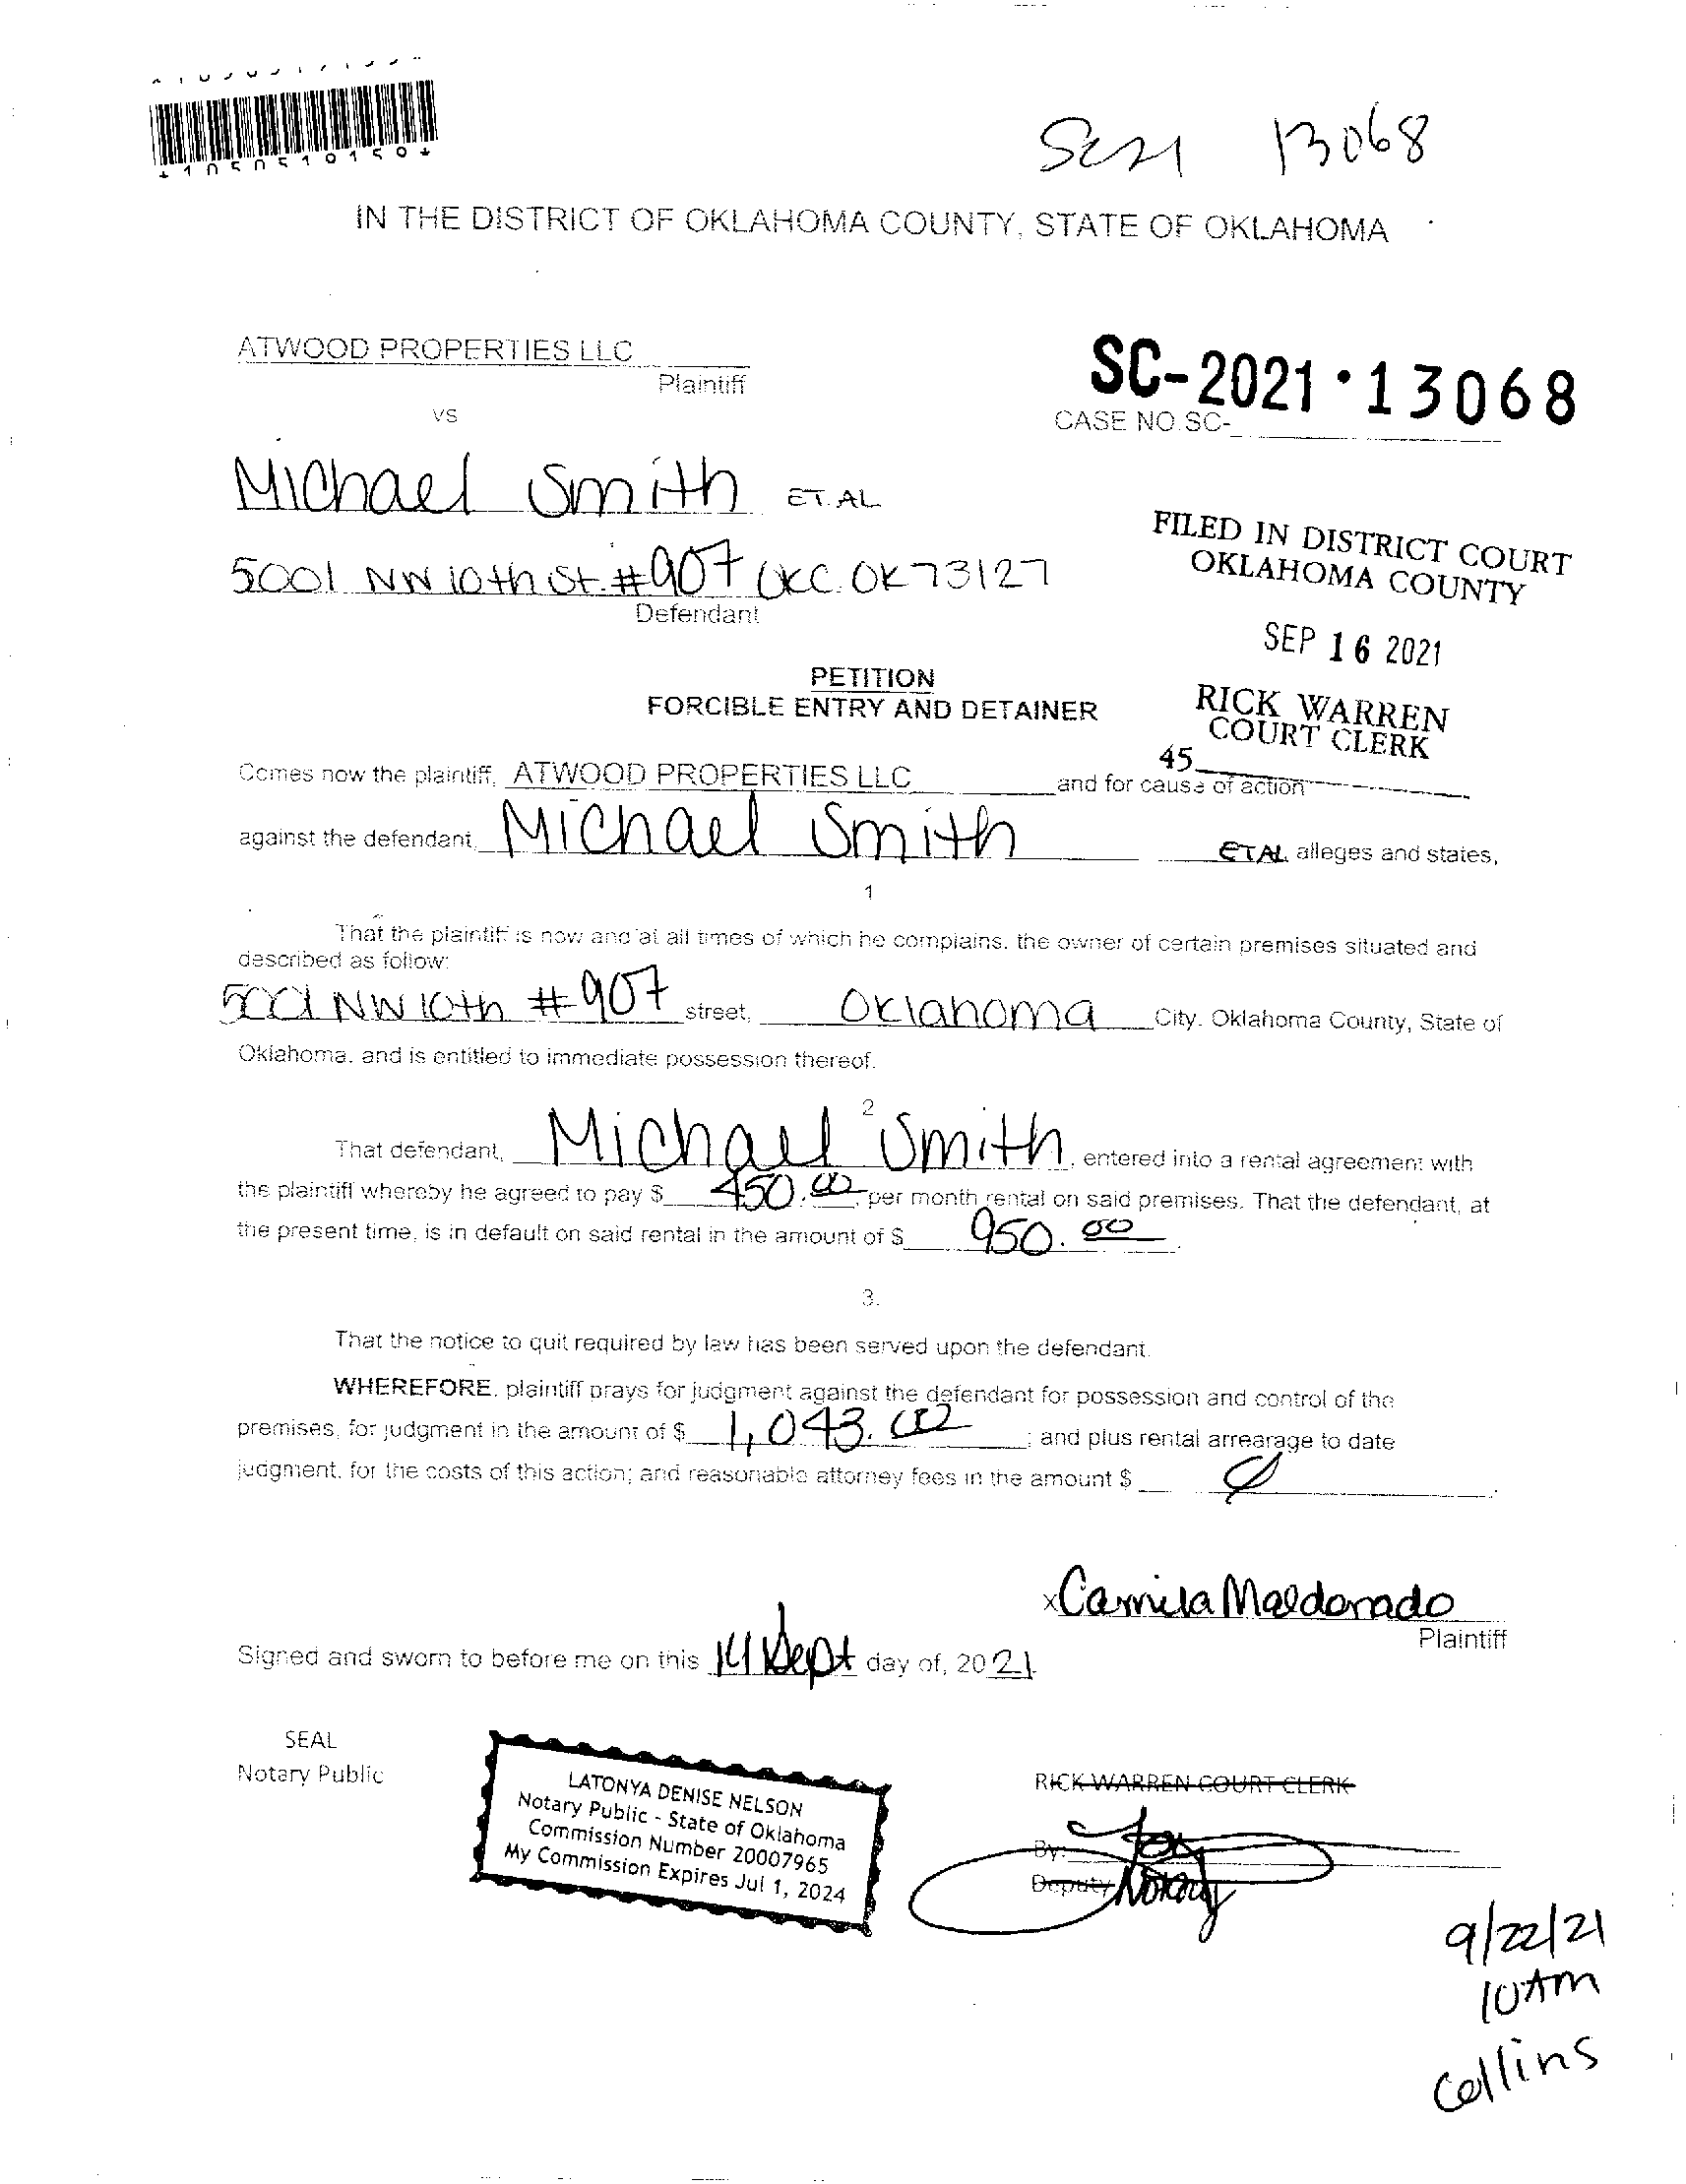 SC21 13068
IN THE DISTRICT OF OKLAHOMA COUNTY, STATE OF OKLAHOMA
ATWOOD PROPERTIES LLC
Plaintiff
VS
SC-2021-13068
CASE NO. SC-
Michael Smith ET.AL
5001 NW 10th St. #907 OKC. OK 73127
Defendant
FILED IN DISTRICT COURT
OKLAHOMA COUNTY
SEP 16 2021
RICK WARREN
COURT CLERK
45
PETITION
FORCIBLE ENTRY AND DETAINER
Comes now the plaintiff, ATWOOD PROPERTIES LLC and for cause of action
against the defendant, Michael Smith ETAL alleges and states,
1
That the plaintiff is now and at all times of which he complains, the owner of certain premises situated and
described as follow:
5001 NW 10th #907 street, Oklahoma City, Oklahoma County, State of
Oklahoma, and is entitled to immediate possession thereof.
2
That defendant, Michael Smith, entered into a rental agreement with
the plaintiff whereby he agreed to pay $ 450.00, per month rental on said premises. That the defendant, at
the present time, is in default on said rental in the amount of $ 950.00.
3.
That the notice to quit required by law has been served upon the defendant.
WHEREFORE, plaintiff prays for judgment against the defendant for possession and control of the
premises, for judgment in the amount of $ 1,043.00; and plus rental arrearage to date
judgment, for the costs of this action; and reasonable attorney fees in the amount $
xCamila Maldonado
Plaintiff
Signed and sworn to before me on this 14 Sept day of, 2021.
SEAL
Notary Public
LATONYA DENISE NELSON
Notary Public - State of Oklahoma
Commission Number 20007965
My Commission Expires Jul 1, 2024
RICK WARREN COURT CLERK
By:
Deputy Notary
9/22/21
10AM
Collins